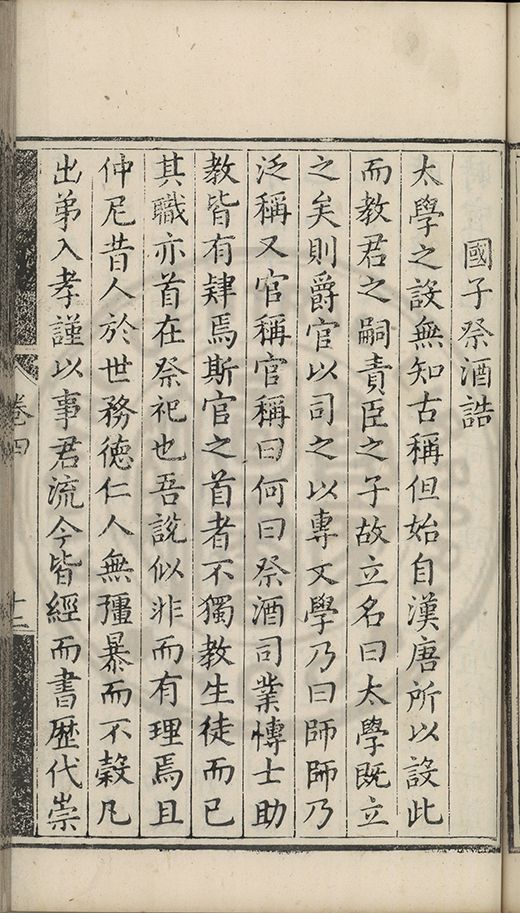 國子祭酒誥
太學之設無知古稱但始自漢唐所以設此
而教君之嗣責臣之子故立名曰太學既立
之矣則爵官以司之以專文學乃曰師師乃
泛稱又官稱官稱曰何曰祭酒司業愽士助
教皆有肄焉斯官之首者不獨教生徒而已
其職亦首在祭祀也吾說似非而有理焉且
仲尼昔人於世務徳仁人無彊暴而不穀凡
出弟入孝謹以事君流今皆經而書歷代崇
卷四
十二